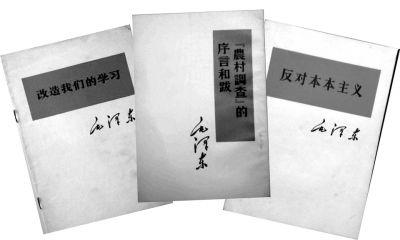 改造我们的学习
毛泽东
『農村調查』的
序言和跋
毛泽东
反对本本主义
毛泽东